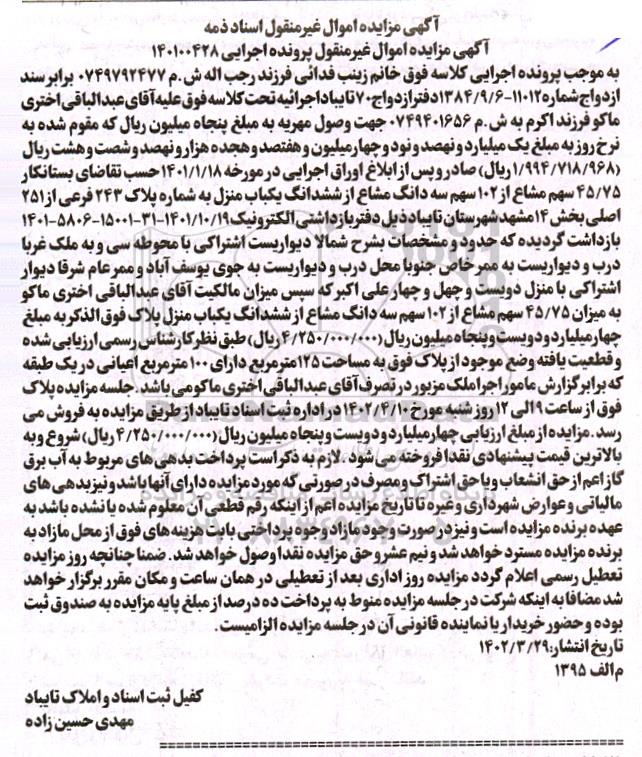 آگهی مزایده اموال غیرمنقول اسناد ذمه
آگهی مزایده اموال غیرمنقول پرونده اجرایی ۱۴۰۱۰۰۴۲۸
به موجب پرونده اجرایی کلاسه فوق خانم زینب فدائی فرزند رجب اله ش.م ۰۷۴۹۷۹۲۴۷۷ برابر سند
ازدواج شماره ۱۱۰۱۲-۱۳۸۴/۹/۶ دفتر ازدواج ۷۰ تایباد اجرائیه تحت کلاسه فوق علیه آقای عبدالباقی اختری
ماکو فرزند اکرم به ش.م ۰۷۴۹۴۰۱۶۵۶ جهت وصول مهریه به مبلغ پنجاه میلیون ریال که مقوم شده به
نرخ روز به مبلغ یک میلیارد و نهصد و نود و چهار میلیون و هفتصد و هجده هزار و نهصد و شصت و هشت ریال
(۱/۹۹۴/۷۱۸/۹۶۸ ریال) صادر و پس از ابلاغ اوراق اجرایی در مورخه ۱۴۰۱/۱/۱۸ حسب تقاضای بستانکار
۴۵/۷۵ سهم مشاع از ۱۰۲ سهم سه دانگ مشاع از ششدانگ یکباب منزل به شماره پلاک ۲۴۳ فرعی از ۲۵۱
اصلی بخش ۱۴ مشهد شهرستان تایباد ذیل دفتر بازداشتی الکترونیک ۱۴۰۱/۱۰/۱۹-۳۱-۱۵۰۰۱-۵۸۰۶-۱۴۰۱
بازداشت گردیده که حدود و مشخصات بشرح شمالا دیواریست اشتراکی با محوطه سی و به ملک غربا
درب و دیواریست به ممر خاص جنوبا محل درب و دیواریست به جوی یوسف آباد و ممر عام شرقا دیوار
اشتراکی با منزل دویست و چهل و چهار علی اکبر که سپس میزان مالکیت آقای عبدالباقی اختری ماکو
به میزان ۴۵/۷۵ سهم مشاع از ۱۰۲ سهم سه دانگ مشاع از ششدانگ یکباب منزل پلاک فوق الذکر به مبلغ
چهار میلیارد و دویست و پنجاه میلیون ریال (۴/۲۵۰/۰۰۰/۰۰۰ ریال) طبق نظر کارشناس رسمی ارزیابی شده
و قطعیت یافته وضع موجود از پلاک فوق به مساحت ۱۲۵ مترمربع دارای ۱۰۰ مترمربع اعیانی در یک طبقه
که برابر گزارش مامور اجرا ملک مزبور در تصرف آقای عبدالباقی اختری ماکو می باشد. جلسه مزایده پلاک
فوق از ساعت ۹ الی ۱۲ روز شنبه مورخ ۱۴۰۲/۴/۱۰ در اداره ثبت اسناد تایباد از طریق مزایده به فروش می
رسد. مزایده از مبلغ ارزیابی چهار میلیارد و دویست و پنجاه میلیون ریال (۴/۲۵۰/۰۰۰/۰۰۰ ریال) شروع و به
بالاترین قیمت پیشنهادی نقدا فروخته می شود. لازم به ذکر است پرداخت بدهی های مربوط به آب برق
گاز اعم از حق انشعاب و یا حق اشتراک و مصرف در صورتی که مورد مزایده دارای آنها باشد و نیز بدهی های
مالیاتی و عوارض شهرداری و غیره تا تاریخ مزایده اعم از اینکه رقم قطعی آن معلوم شده یا نشده باشد به
عهده برنده مزایده است و نیز در صورت وجود مازاد وجوه پرداختی بابت هزینه های فوق از محل مازاد به
برنده مزایده مسترد خواهد شد و نیم عشر و حق مزایده نقدا وصول خواهد شد. ضمنا چنانچه روز مزایده
تعطیل رسمی اعلام گردد مزایده روز اداری بعد از تعطیلی در همان ساعت و مکان مقرر برگزار خواهد
شد مضافا به اینکه شرکت در جلسه مزایده منوط به پرداخت ده درصد از مبلغ پایه مزایده به صندوق ثبت
بوده و حضور خریدار یا نماینده قانونی آن در جلسه مزایده الزامیست.
تاریخ انتشار: ۱۴۰۲/۳/۲۹
م الف ۱۳۹۵
کفیل ثبت اسناد و املاک تایباد
مهدی حسین زاده